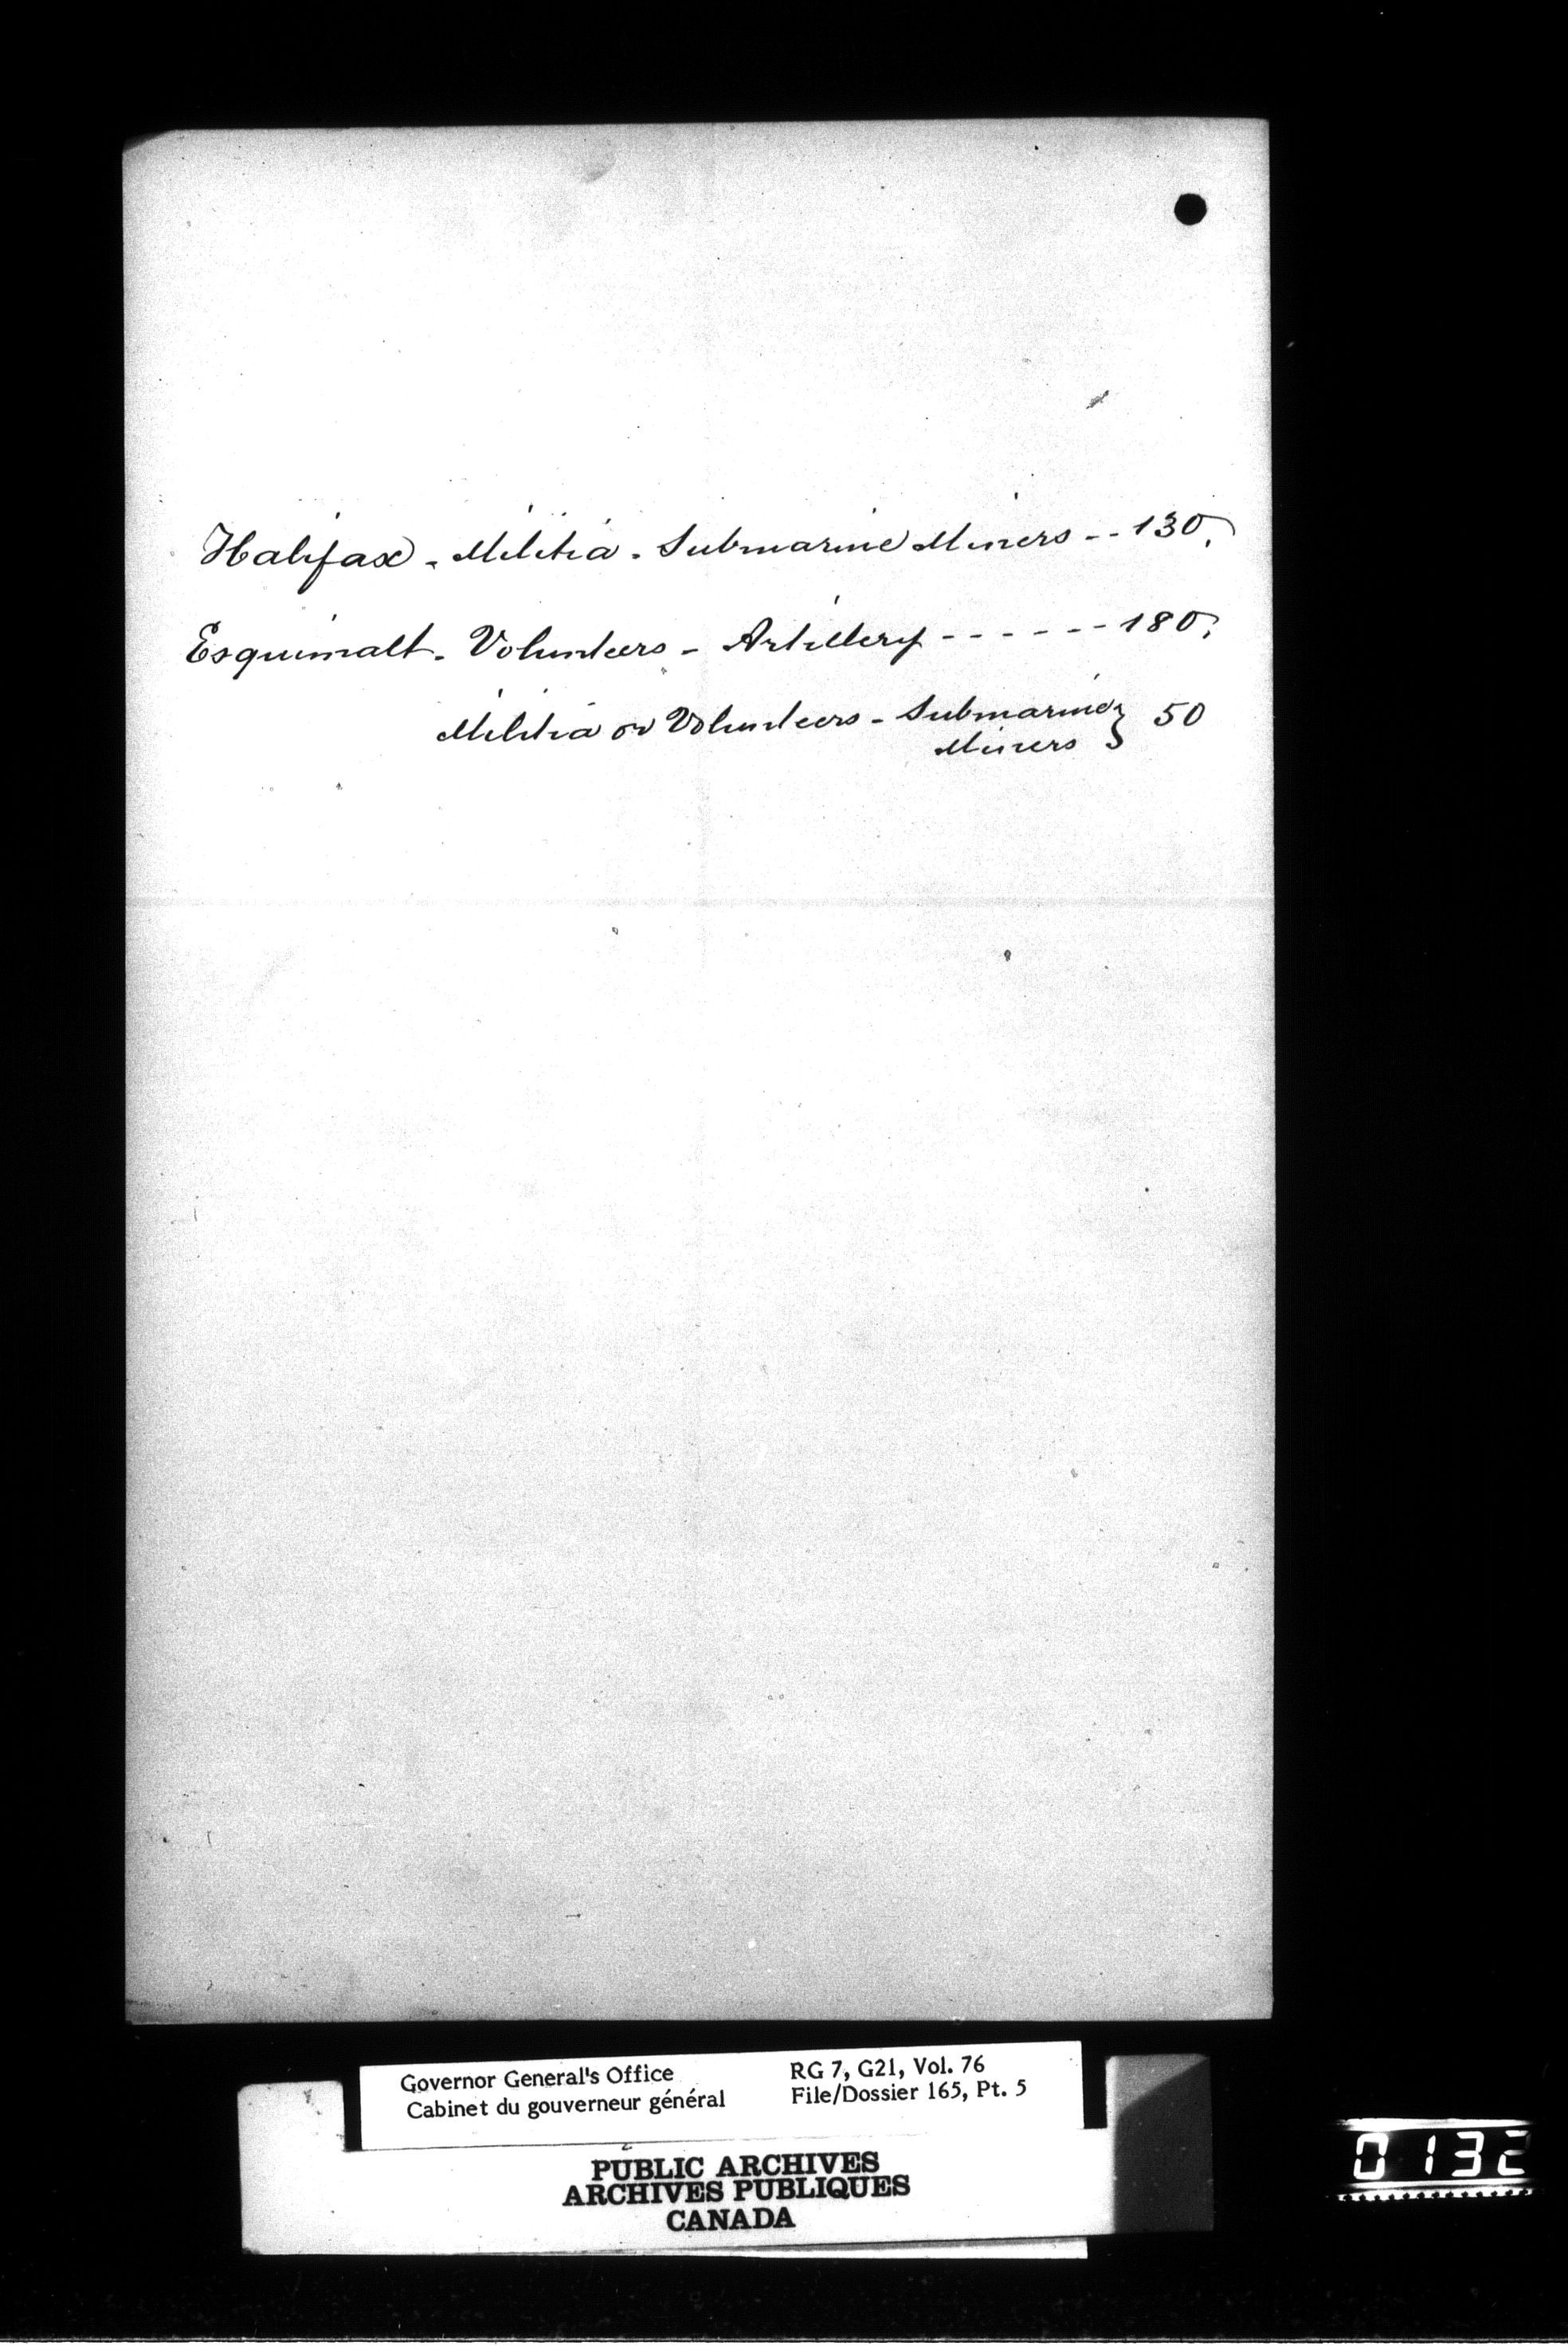 Halifax - Militia - Submarine Miners - - 130.
Esquimalt - Volunteers - Artillery - - - - - - 180.
Militia or Volunteers - Submarine } 50
Miners
Governor General's Office RG 7, G21, Vol. 76
Cabinet du gouverneur général File/Dossier 165, Pt. 5
PUBLIC ARCHIVES
ARCHIVES PUBLIQUES
CANADA
0132